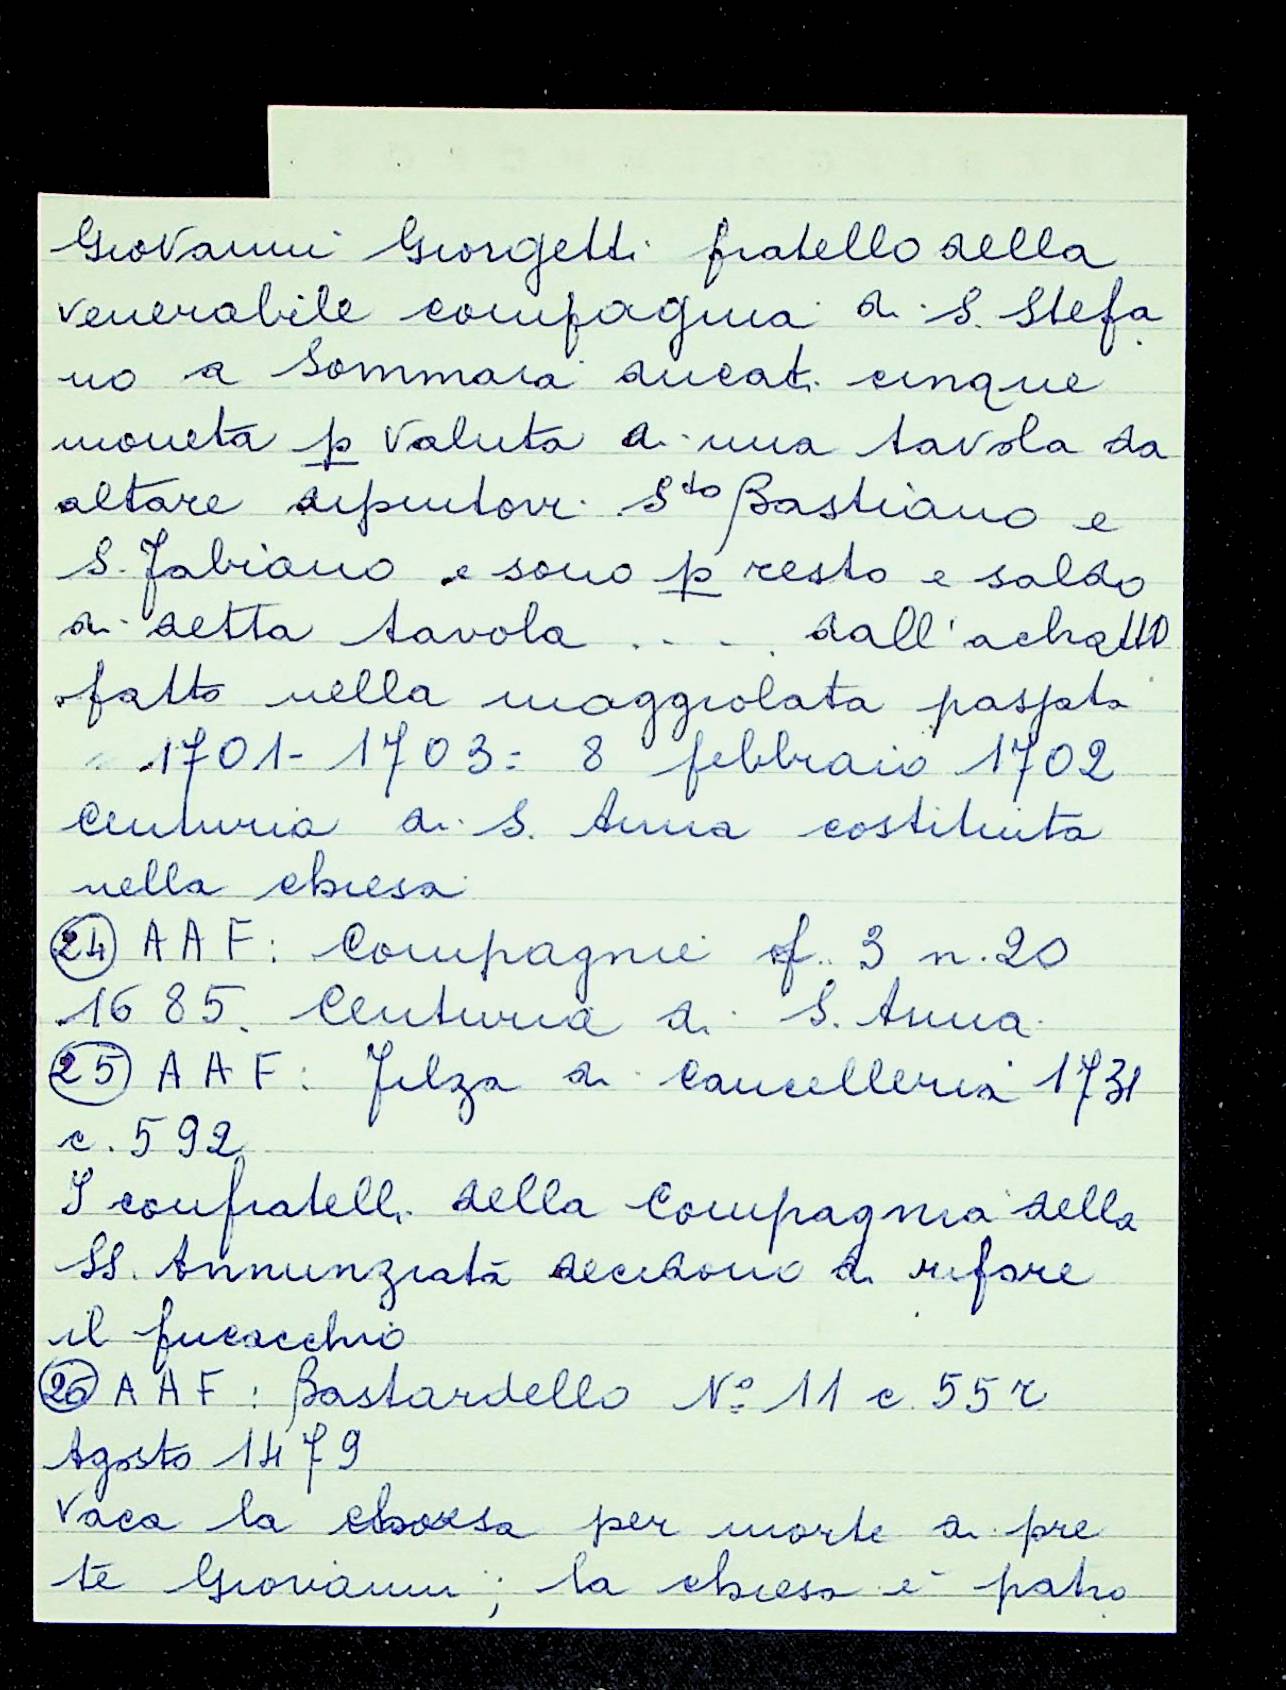 Giovanni Giorgetti fratello della
venerabile compagnia di S. Stefa
no a Sommaia ducati cinque
moneta p valuta di una tavola da
altare dipintovi Sto Bastiano e
S. Fabiano e sono p resto e saldo
di detta tavola .... dall'achatto
fatto nella maggiolata passata
1701-1703: 8 febbraio 1702
Centuria di S. Anna costituita
nella chiesa
24 AAF: Compagnie f. 3 n. 20
1685. Centuria di S. Anna
25 AAF: Filza di Cancelleria 1731
c. 592
I confratelli della Compagnia della
SS. Annunziata decidono di rifare
il
26 AAF: Bastardello No 11 c. 55r
Agosto 1479
Vaca la chiesa per morte di pre
te Giovanni; la chiesa è patro